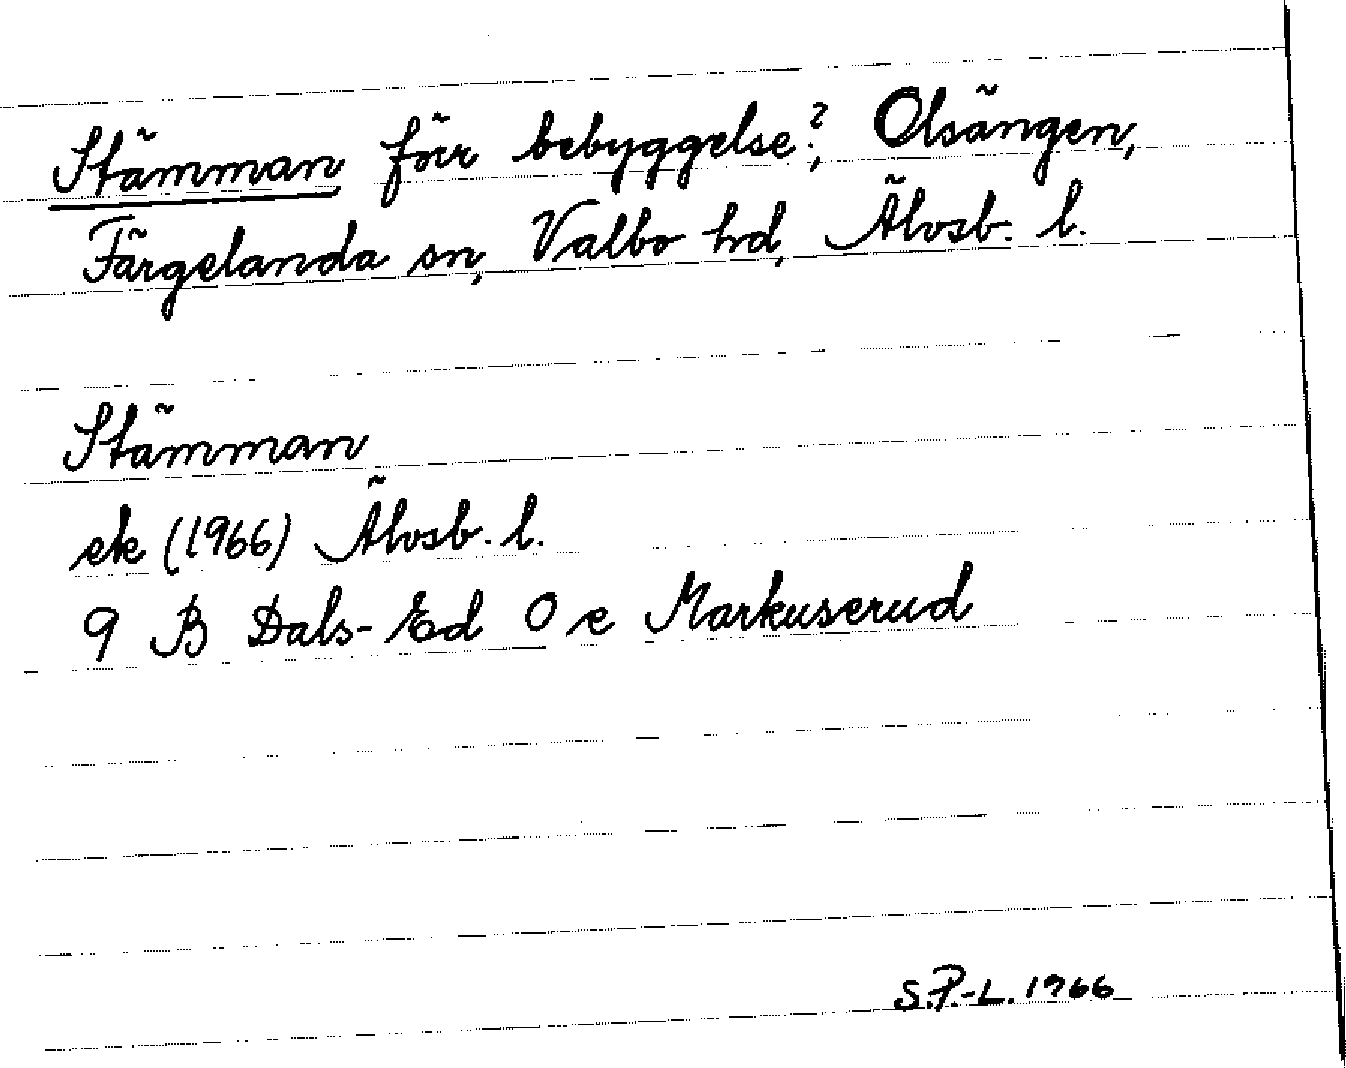 Stämman förr bebyggelse?, Olsängen,
Färgelanda sn, Valbo hd, Älvsb. l.
Stämman
ek (1966) Älvsb. l.
9 B Dals-Ed O e Markuserud
S.P.-L. 1966